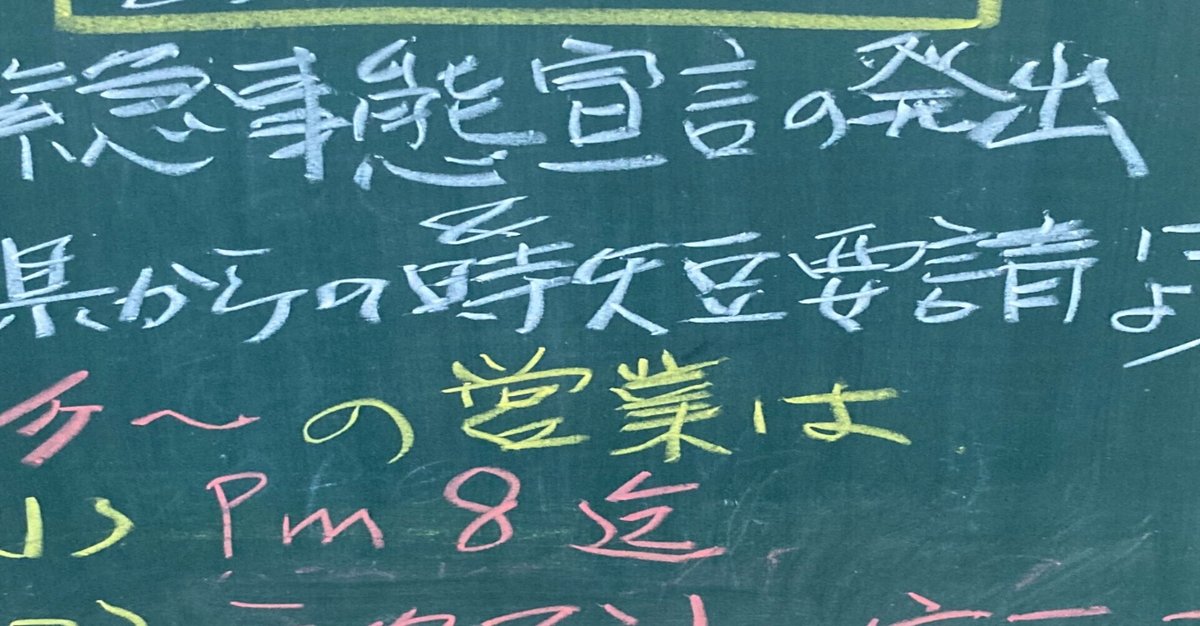 緊急事態宣言の発出
県からの時短要請に
の営業は
Pm 8 迄